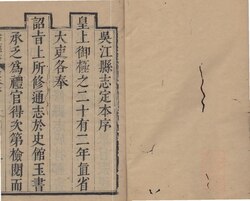 吳江縣志定本序
皇上御極之二十有二年直省
大吏各奉
詔旨上所修通志於史館玉書
承乏為禮官得次第檢閱而